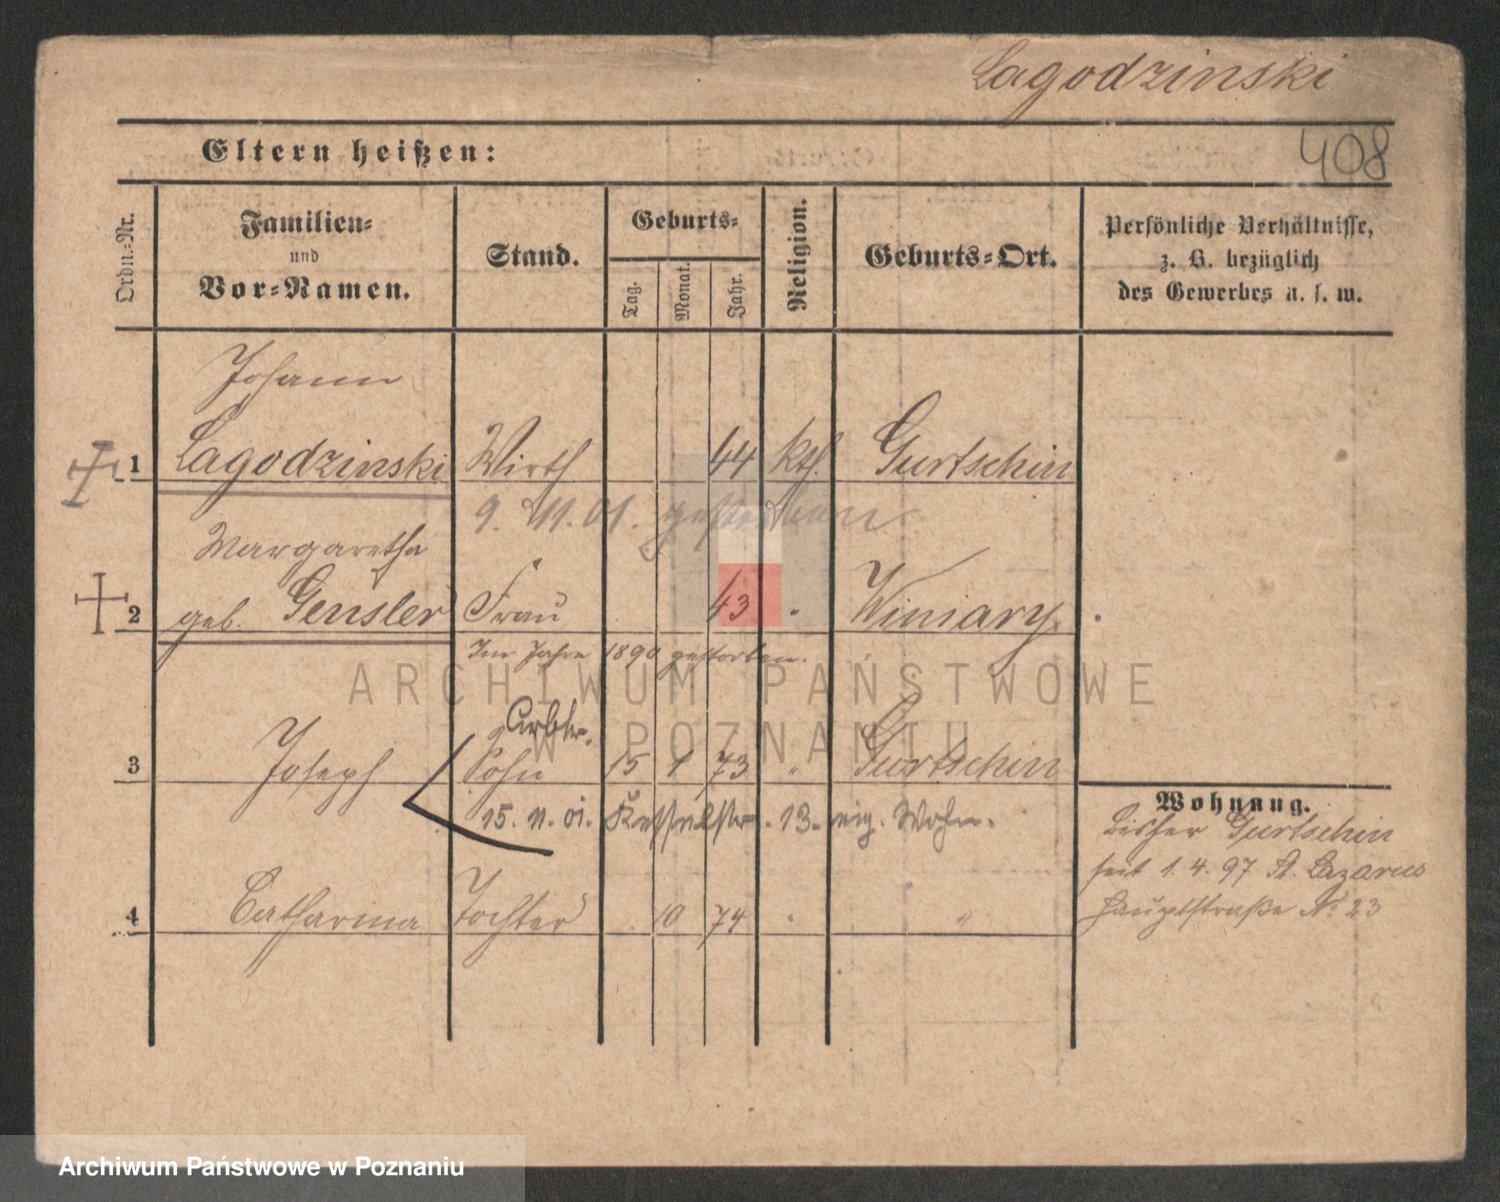 Lagodzinski
408
Eltern heißen:
Ordn.-Nr.
Familien-
und
Vor-Namen.
Stand.
Geburts-
Tag.
Monat.
Jahr.
Religion.
Geburts-Ort.
Persönliche Verhältnisse,
z. B. bezüglich
des Gewerbes u. s. w.
Johann
1 Lagodzinski Wirth 44 kth. Gurtschin
9. 11. 01. gestorben
Margaretha
2 geb. Gensler Frau 43 " Winiary
Im Jahre 1890 gestorben.
Arbtr.
3 Joseph Sohn 15 1 73 " Gurtschin
15. 11. 01. Kesselstr. 13. eig. Wohn.
Wohnung.
bisher Gurtschin
seit 1. 4. 97 St. Lazarus
Hauptstraße No 23
4 Catharina Tochter 10 74 " "
ARCHIWUM PAŃSTWOWE
W POZNANIU
Archiwum Państwowe w Poznaniu